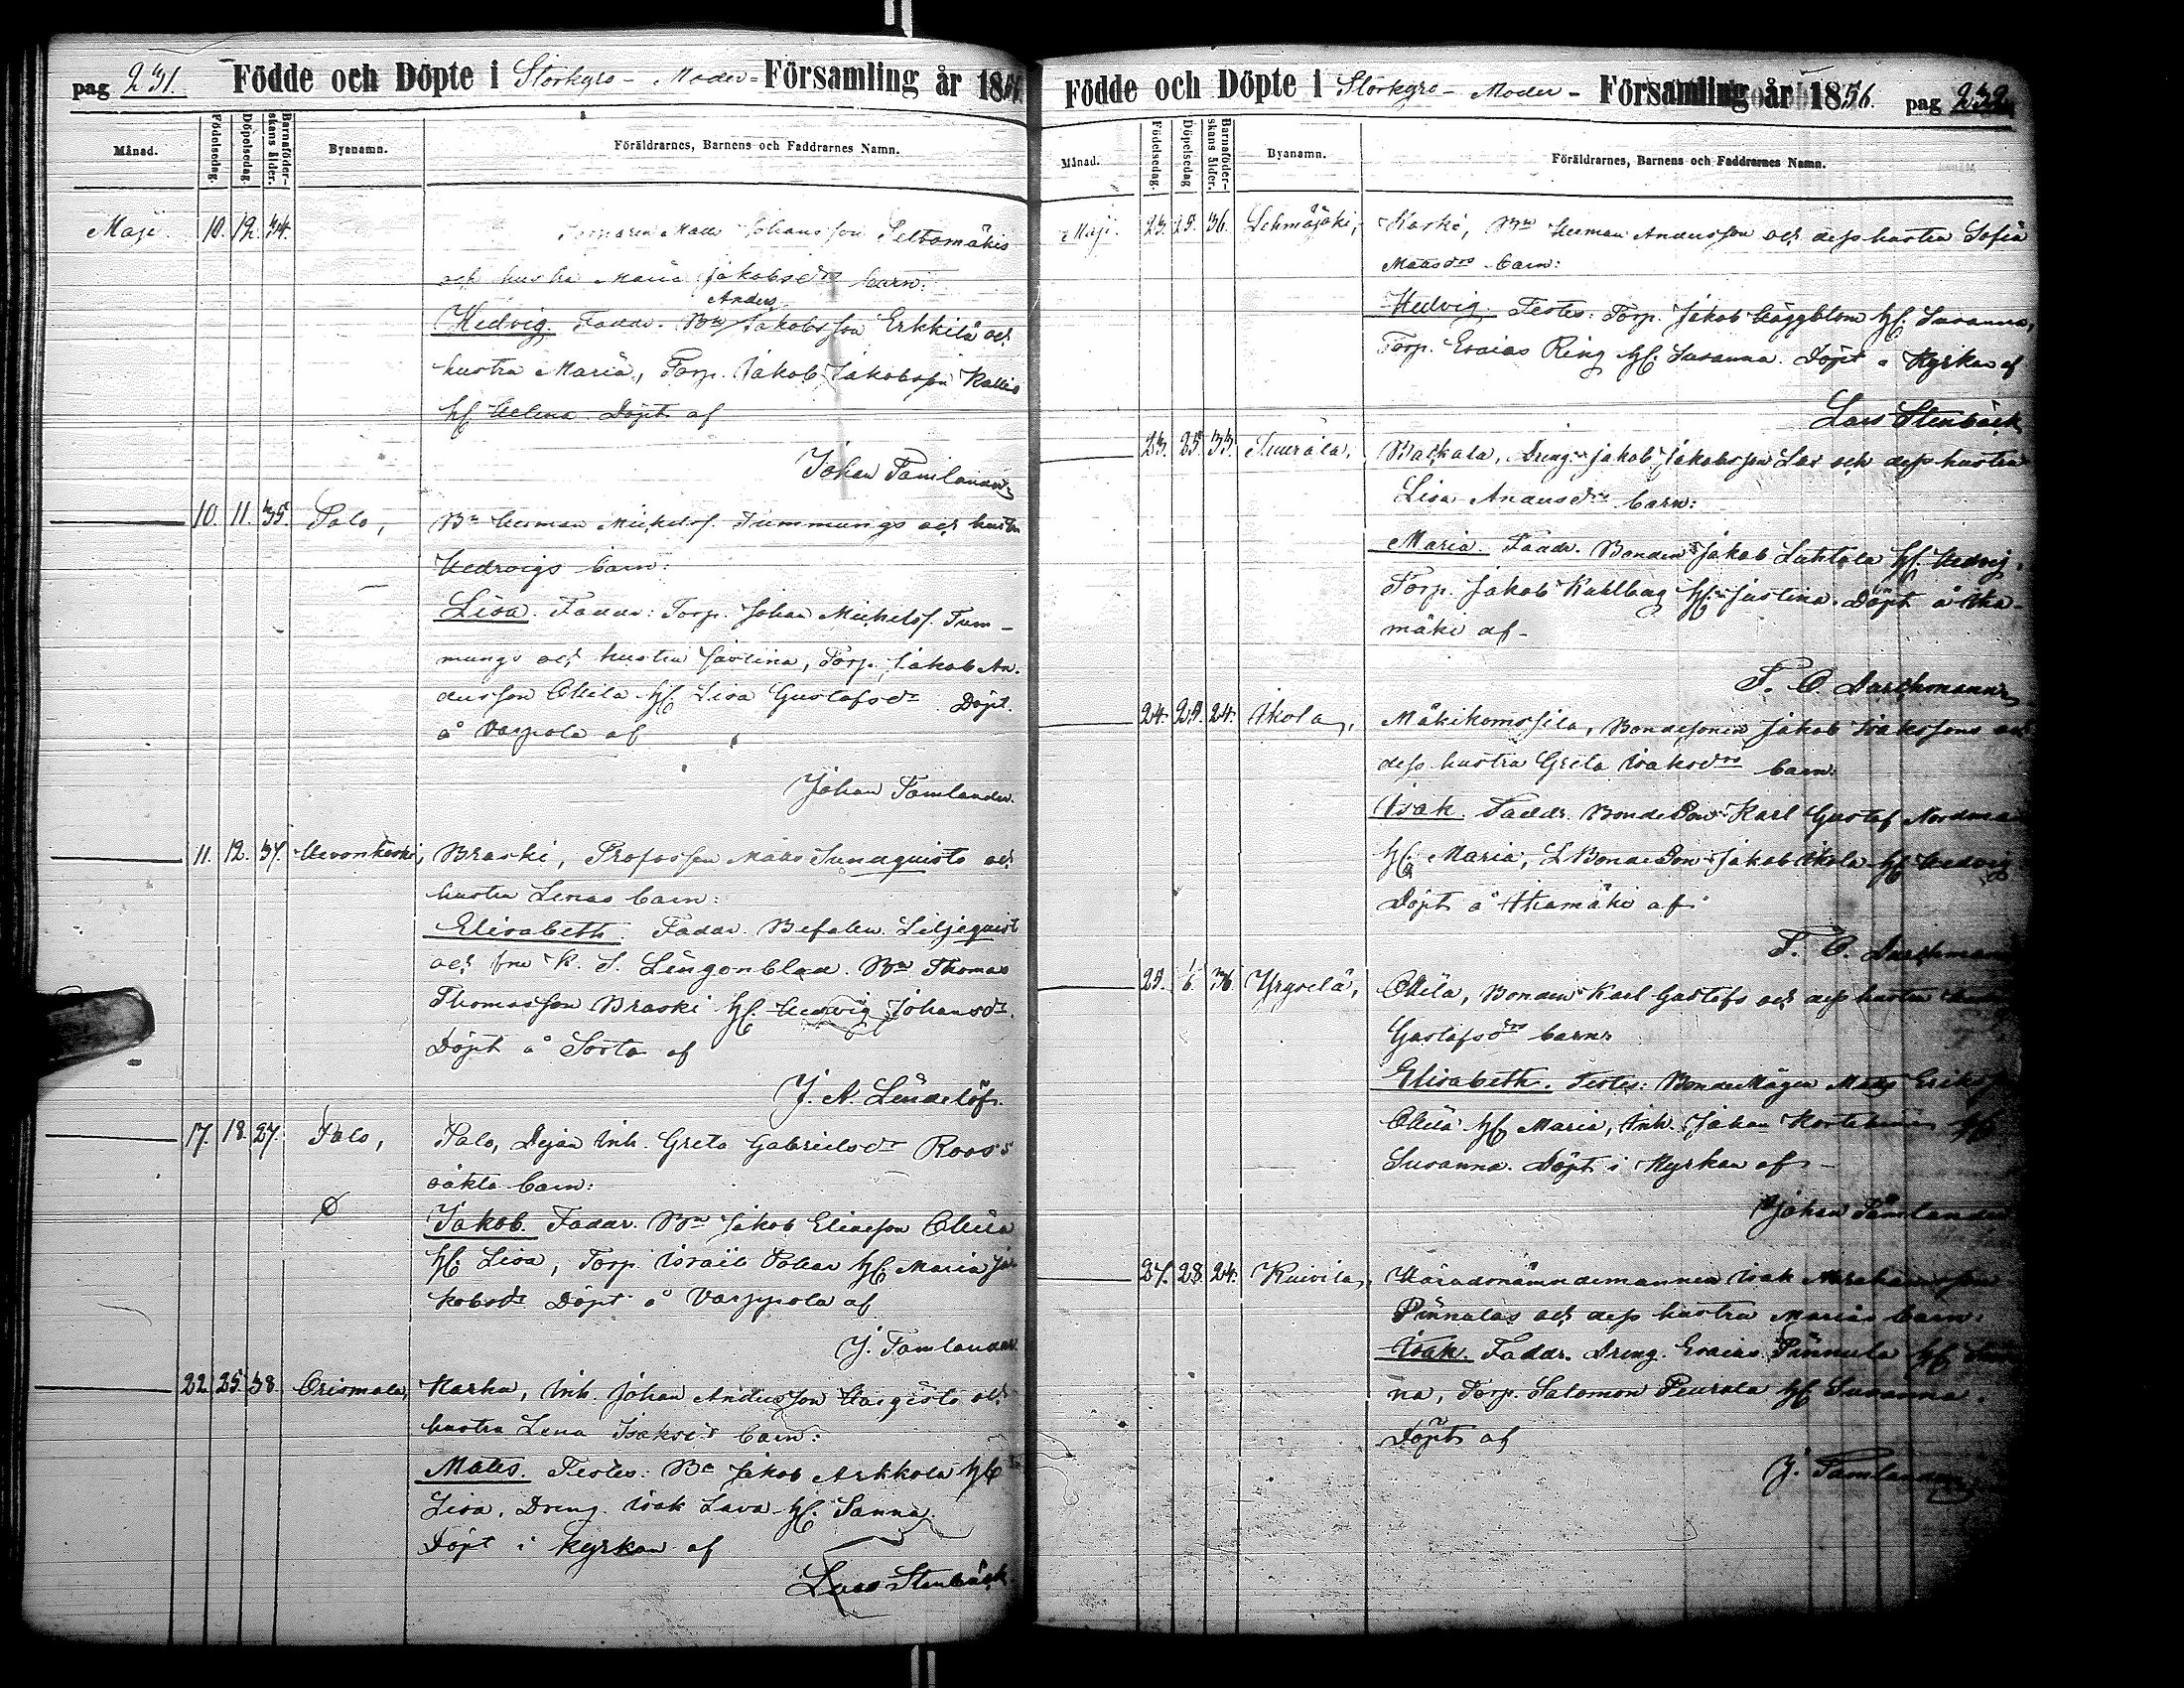 pag 231.
Födde och Döpte i Storkyro - Moder - Församling år 1856.
Månad. Födelsedag. Döpelsedag. Barnaföderskans ålder. Byanamn. Föräldrarnes, Barnens och Faddrarnes Namn.
Maji. 10. 12. 34. Torparen Mats Johansson Peltomäkis
och hustru Maria Jakobsdrs barn:
Anders
Hedvig. Faddr. Bn Jakobsson Erkkilä och
hustru Maria, Torp. Jakob Jakobsson Kallio
h/. Helena. Döpt af
Johan Tamlander
10. 11. 35. Palo, Bn Herman Michelss. Tummungs och hustru
Hedvigs barn:
Lisa. Faddr: Torp. Johan Michelss. Tum-
mungs och hustru Justina, Torp. Jakob An-
dersson Ollila h/. Lisa Gustafsdr. Döpt
å Varpola af
Johan Tamlander.
11. 12. 37. Hevonkoski, Braski, Profossen Mats Sundquists och
hustru Lenas barn:
Elisabeth. Faddr. Befalen. Liljequist
och fru K. S. Lingonblad. Bn Thomas
Thomasson Braski h/. Hedvig Johansdr.
Döpt å Sorto af
J. A. Lindelöf.
17. 18. 27. Palo, Palo, Dejan Inh. Greta Gabrielsdr Roos's
oäkta barn:
Jakob. Faddr. Bn Jakob Eliasson Ollila
h/. Lisa, Torp. Israil h/. Maria Ja-
kobsdr Döpt å Varpola af
J. Tamlander
22. 25. 38. Orismala, Karhu, Inh. Johan Andersson och
hustru Lena Isaksdrs barn:
Mats. Testes: Bn Jakob Arkkola h/.
Lisa. Dreng. Isak Lava h/. Sanna.
Döpt i kyrkan af
Lars Stenbäck
Födde och Döpte i Storkyro - Moder - Församling år 1856. pag 232
Månad. Födelsedag. Döpelsedag Barnaföderskans ålder. Byanamn. Föräldrarnes, Barnens och Faddrarnes Namn.
Maji. 23. 25. 36. Lehmäjoki, Koski, Bn Herman Andersson och dess hustru Sofia
Matsdrs barn:
Hedvig. Testes: Torp. Jakob Häggblom h/. Susanna,
Torp. Esaias Ring h/. Susanna. Döpt i Kyrkan af
Lars Stenbäck
23. 25. 33. Tuurala, Dreng. Jakob Jakobsson och dess hustru
Lisa Andersdrs barn:
Maria. Faddr. Bonden Jakob Lahtola h/. Hedvig,
Torp. Jakob Kuhlberg h/. Justina. Döpt å
mäki af
24. 25. 24. Ikola, Mäkikomssila, Bondesonen Jakob Isakssons och
dess hustru Greta Isaksdrs barn:
Isak. Faddr. BondeSon Karl Gustaf
h/. Maria, BondeSon Jakob Ikola h/. Hedvig
Döpt å af
25. 1/6. 36. Yryselä, Ollila, Bonden Karl Gustafs och dess hustru
Gustafsdrs barn:
Elisabeth. Testes: BondeMågen Mats Eriksson
Ollila h/. Maria, Inh. Johan h/.
Susanna. Döpt i Kyrkan af
Johan Tamlander
27. 28. 24. Kuivila, Häradsnämndemannen Isak Abrahamsson
Pinnalas och dess hustru Marias barn:
Isak. Faddr. Dreng. Esaias Pinnula h/. San-
na, Torp. Salomon Peurala h/. Susanna.
Döpt af
J. Tamlander